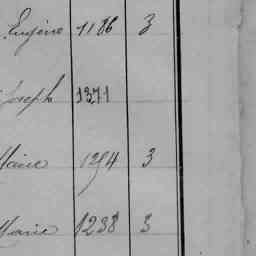 Eugène 1186 3
Joseph 1371
Marie 1294 3
Marie 1238 3